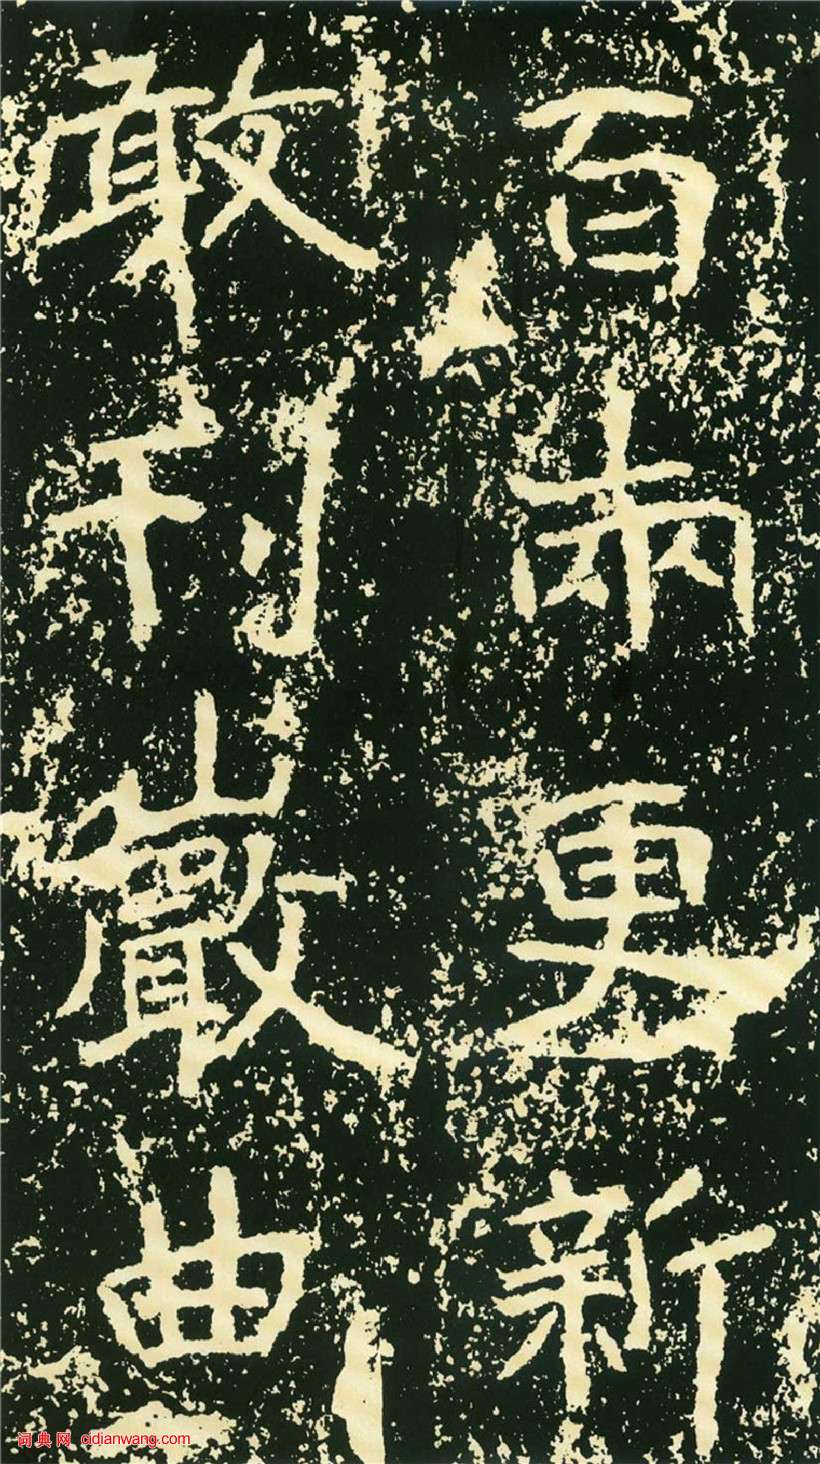 百兩更新
敢刊巖曲
词典网 cidianwang.com